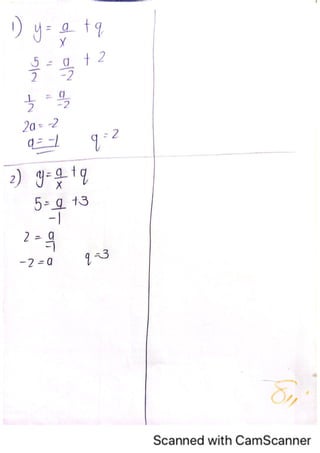 1) y = a/x + q
5/2 = a/-2 + 2
1/2 = a/-2
2a = -2
a = -1 q = 2
2) y = a/x + q
5 = a/-1 + 3
2 = a/-1
-2 = a q = 3
Scanned with CamScanner